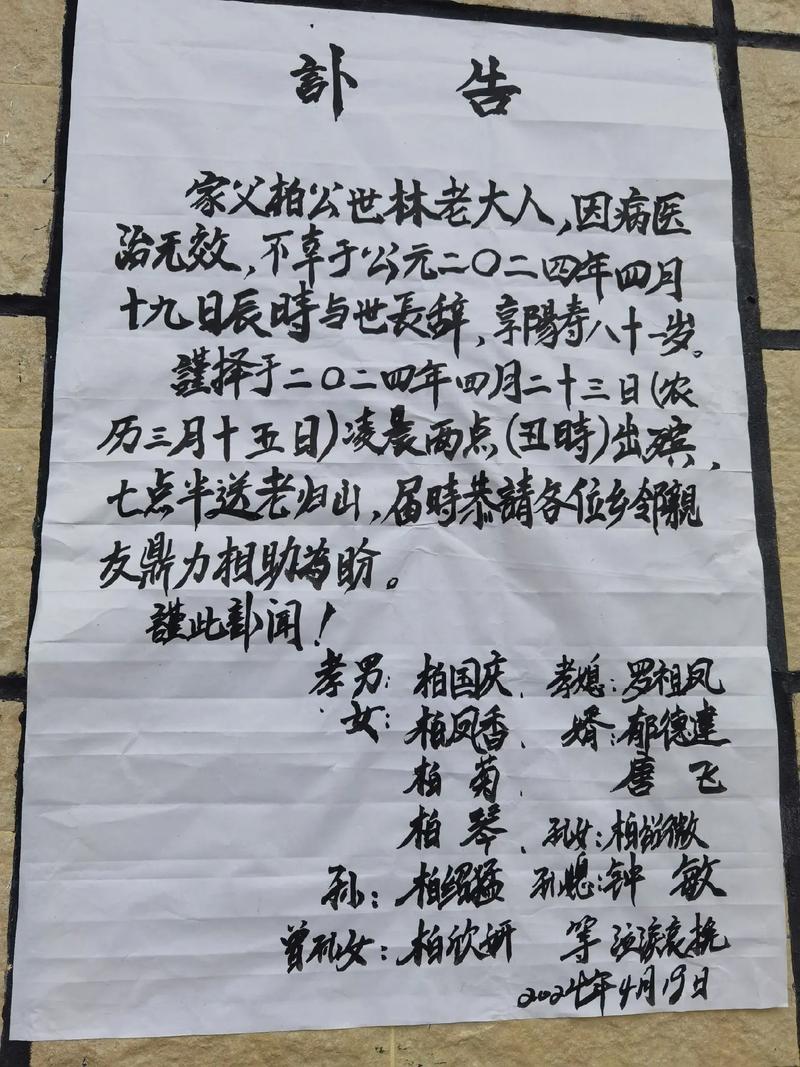 訃 告
家父柏公世林老大人,因病医
治无效,不幸于公元二〇二四年四月
十九日辰時与世長辞,享陽寿八十一岁。
謹择于二〇二四年四月二十三日(农
历三月十五日)凌晨两点(丑時)出殡,
七点半送老归山,届時恭請各位乡邻親
友鼎力相助為盼。
謹此訃闻!
孝男:柏国庆、孝媳:罗祖凤
女:柏凤香、婿:郁德達
柏菊、唐飞
柏琴、孙女:柏 微
孙:柏绍猛 孙媳:钟敏
曾孙女:柏欣妍 等泣淚哀挽
2024年4月19日